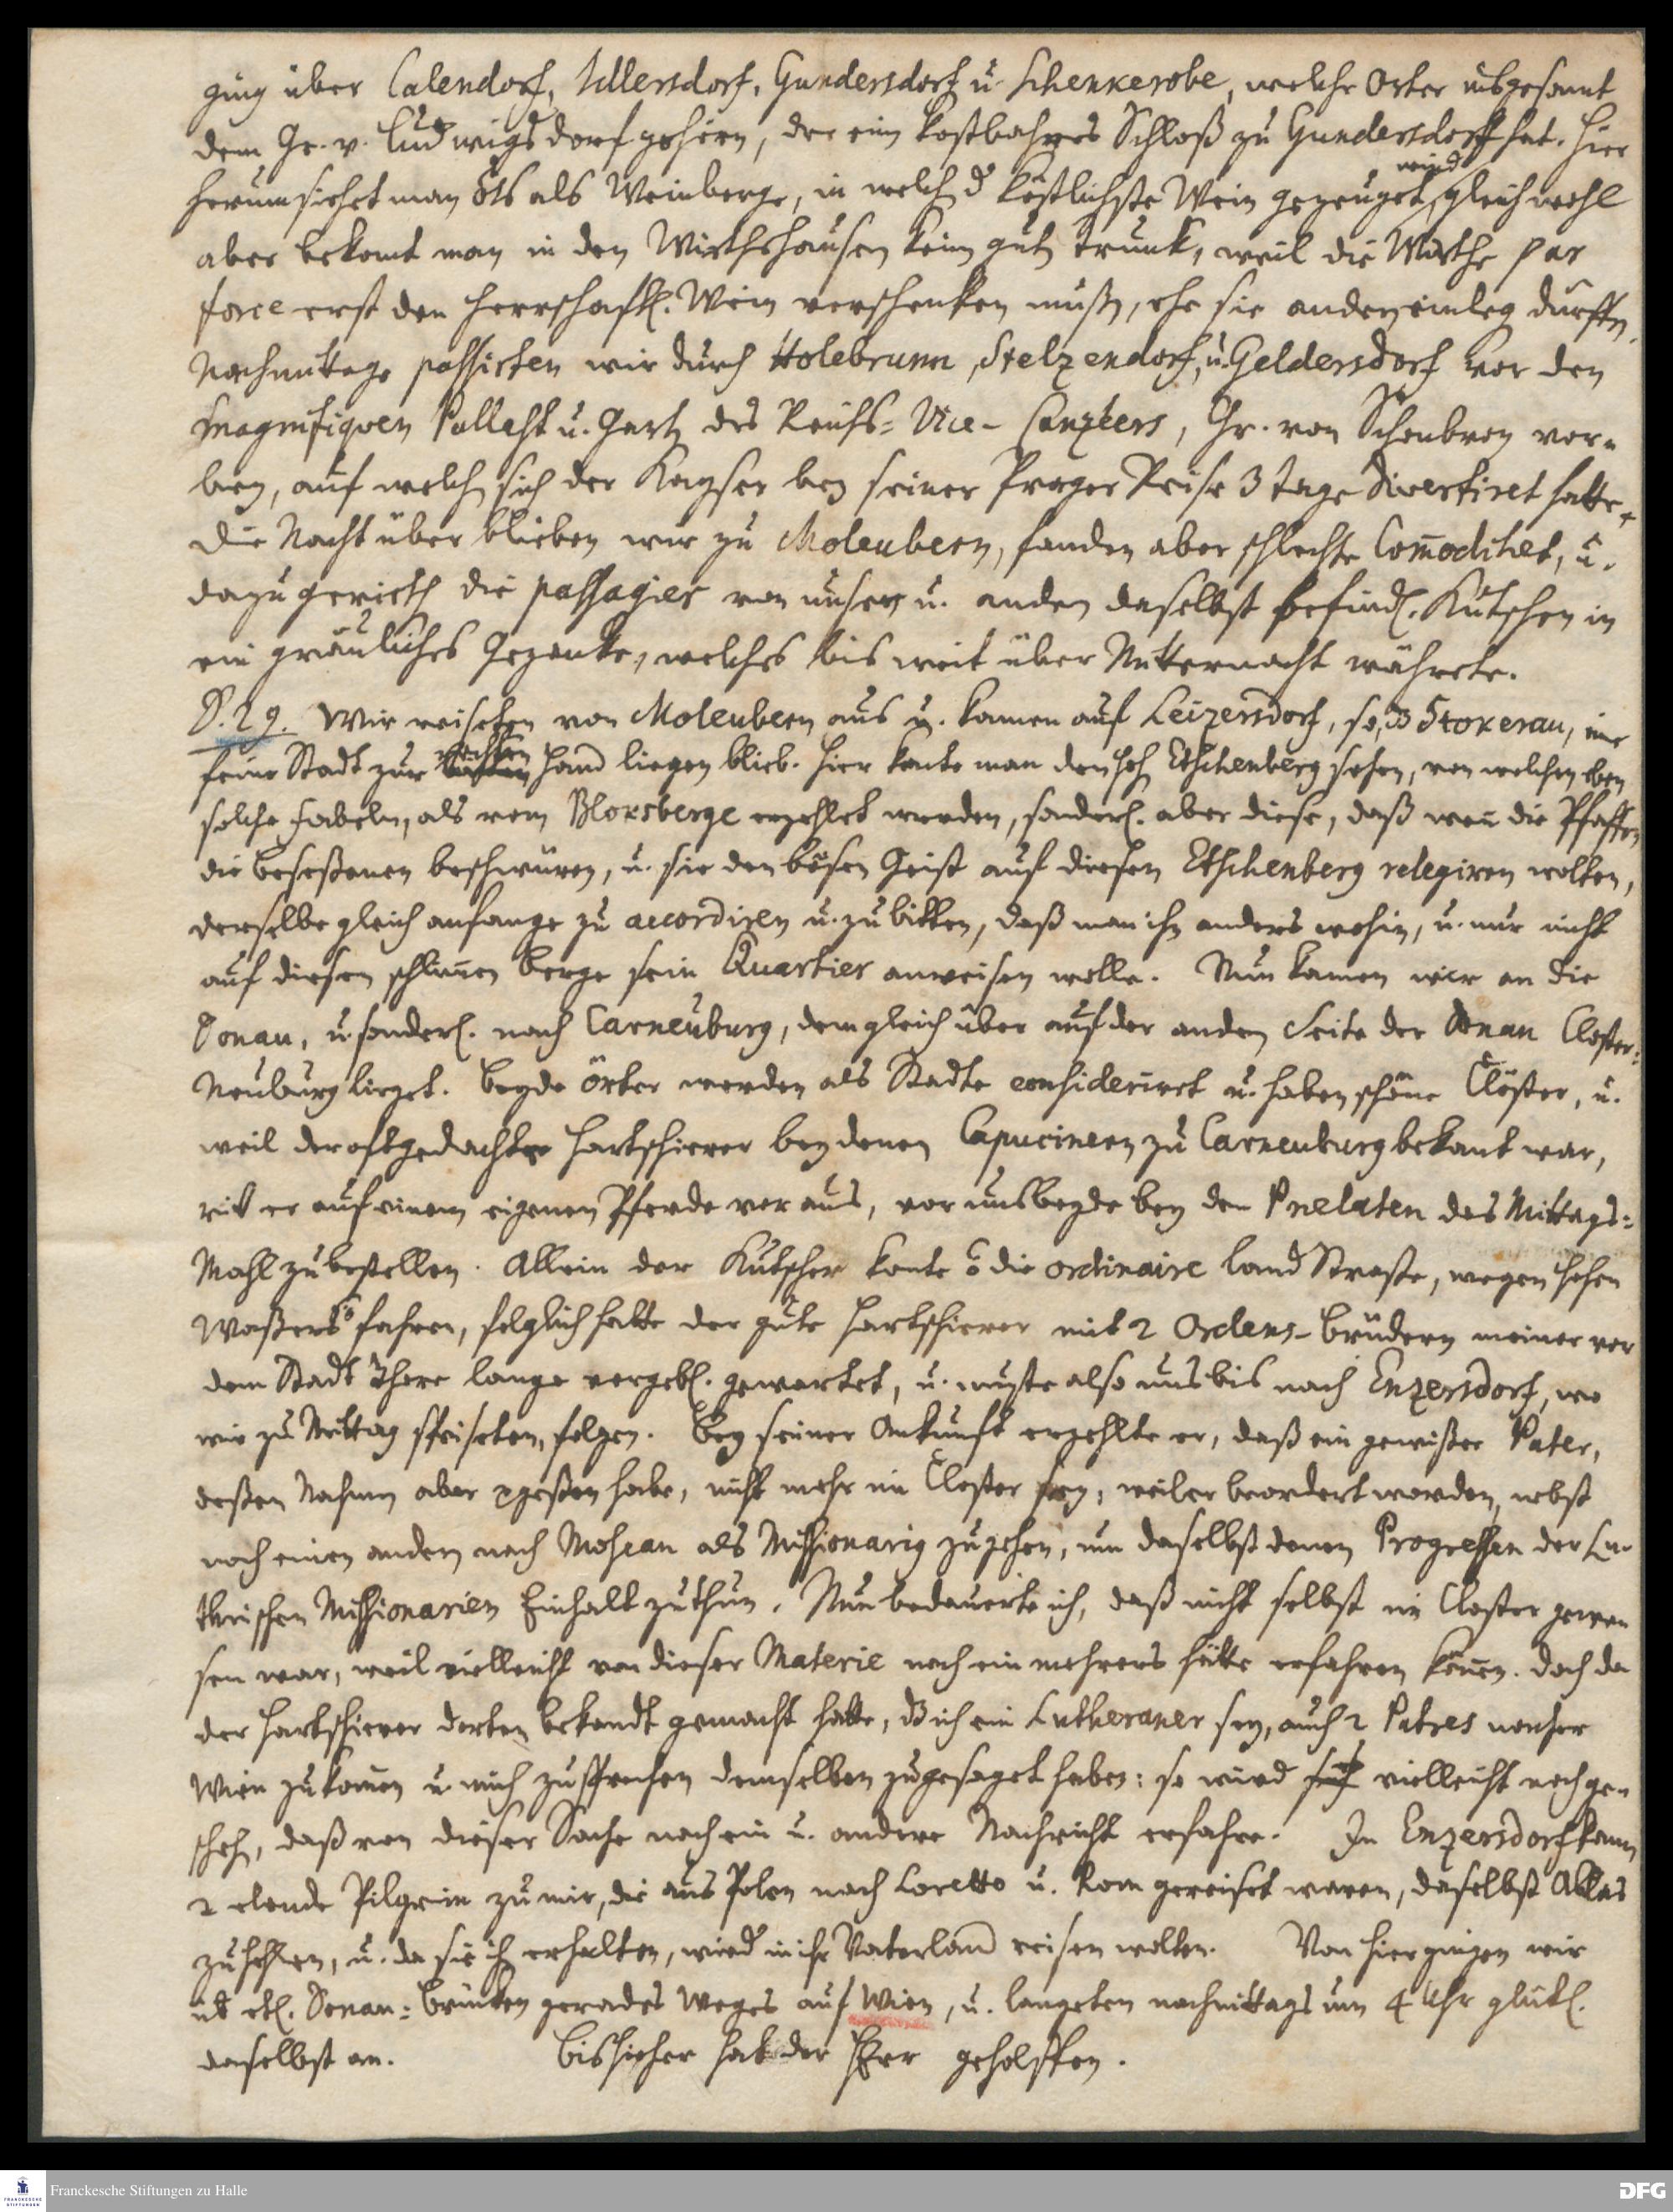 ging über Calendorf, Ullersdorf, Gundersdorf u. Schenkerobe, welche Örter insgesamt
dem Gr. v. Ludwigsdorf gehören, der ein kostbahres Schloß zu Gundersdorff hat. Hier
herum siehet man als Weinberge, in welch d köstlichste Wein gezeuget wird, gleichwohl
aber bekomt man in den Wirthshäusern kein gutn Trunk, weil die Wirthe par
force erst den herrschaftl. Wein verschenken müßn, ehe sie andern einleg dürffn.
Nachmittage passirten wir durch Holebrunn, Stelzendorf, u. Geldersdorf vor den
magnifiquen Pallast u. Gartn des Reichs-Vice-Canzlers, Gr. von Schonbron vor-
bey, auf welch sich der Kayser bey seiner Prager Reise 3 Tage divertiret hatte.
Die Nacht über blieben wir zu Moleubern, fanden aber schlechte Comoditet, u.
dazu geriethn die passagier von unser u. andern daselbst befindl. Kutschen in
ein gräuliches Gezanke, welches bis weit über Mitternacht währete.
D. 29. Wir reiseten von Moleubern aus u. kamen auf Leizersdorf, so, dß Stokerau, eine
feine Stadt zur rechten Hand liegen blieb. Hier konte man den hohn Etschenberg sehen, von welchen eben
solche Fabeln, als vom Bloxsberge erzehlet werden, sonderl. aber diese, daß wen die Pfaffen
die beseßenen beschwüren, u. sie den bösen Geist auf diesen Etschenberg relegiren wolten,
derselbe gleich anfange zu accordiren u. zu bitten, daß man ihn anders wohin, u. nur nicht
auf diesen schlimen Berge sein Quartier anweisen wolle. Nun kamen wir an die
Donau, u. sonderl. nach Carneuburg, dem gleich über auf der andern Seite der Donau Closter-
Neuburg lieget. Beyde örter werden als Städte consideriret u. haben schöne Clöster, u.
weil der oftgedachte Hartschierer bey denen Capucinern zu Carneuburg bekant war,
ritt er auf einem eigenen Pferde voraus, vor uns beyde bey den Prelaten das Mittags-
Mahl zu bestellen. Allein der Kutscher konte die ordinaire Land Straße, wegen hohen
Waßers fahren, folglich hatte der gute Hartschierer mit 2 Ordens-Brüdern meiner vor
dem Stadt Thore lange vergebl. gewartet, u. muste also uns bis nach Enzersdorf, wo
wir zu Mittag speiseten, folgen. Bey seiner Ankunft erzehlte er, daß ein gewißer Pater,
deßen Nahmen aber vergeßen habe, nicht mehr im Closter sey, weil er beordert worden, nebst
noch einen andern nach Moscau als Missionarig zu gehen, um daselbst denen Progressen der Lu-
therischen Missionarien Einhalt zu thun. Nun bedauerte ich, daß nicht selbst im Closter gewe-
sen war, weil vielleicht von dieser Materie noch ein mehrers hätte erfahren könen. Doch da
der Hartschierer dorten bekandt gemacht hatte, dß ich ein Lutheraner sey, auch 2 Patres nacher
Wien zu komen u. mich zu sprechen demselben zugesaget haben: so wird vielleicht noch ge-
schehn, daß von dieser Sache noch ein u. andere Nachricht erfahre. In Enzersdorf kamen
2 elende Pilgrim zu mir, die aus Polen nach Loretto u. Rom gereiset waren, daselbst Ablas
zu hohlen, u. da sie ihn erhalten, wied in ihr Vaterland reisen wolten. Von hier gingen wir
üb etl. Donau-Brücken gerades Weges auf Wien, u. langeten nachmittags um 4 Uhr glükl.
daselbst an. Bis hieher hat der HErr geholffen.
Franckesche Stiftungen zu Halle
FRANCKESCHE STIFTUNGEN
DFG